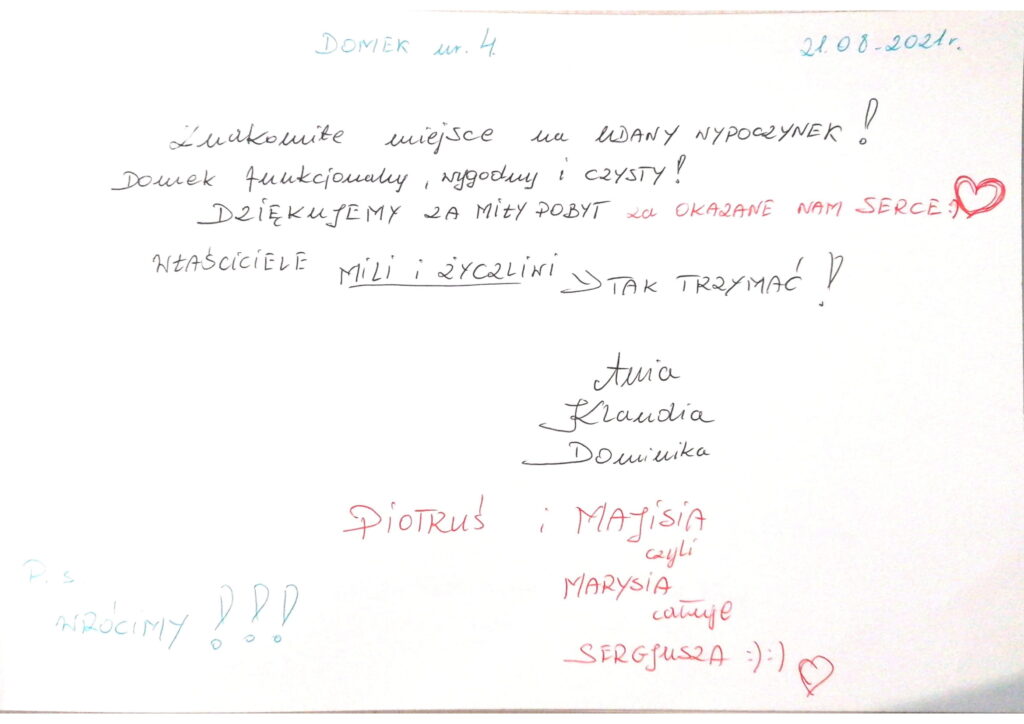 DOMEK nr. 4
21.08-2021r.
Znakomite miejsce na UDANY WYPOCZYNEK!
Domek funkcjonalny, wygodny i CZYSTY!
DZIĘKUJEMY ZA MIŁY POBYT za OKAZANE NAM SERCE:)
WŁAŚCICIELE MILI i ŻYCZLIWI TAK TRZYMAĆ!
Ania
Klaudia
Dominika
PIOTRUŚ i MAJISIA
czyli
MARYSIA
całuje
SERGJUSZA :) :)
P.s
WRÓCIMY!!!